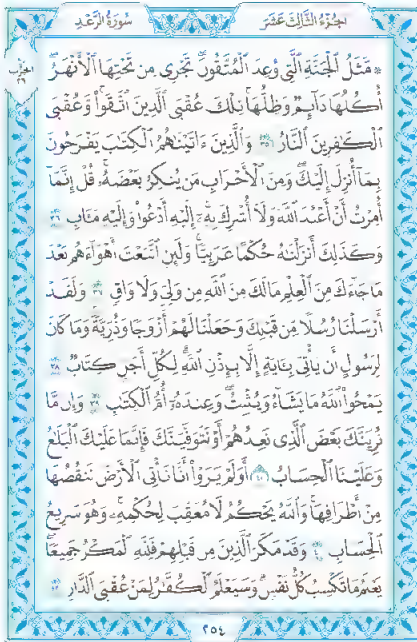 سُورَةُ الرَّعْدِ
الجُزْءُ الثَّالِثَ عَشَرَ
الحزب
۞ مَّثَلُ ٱلْجَنَّةِ ٱلَّتِى وُعِدَ ٱلْمُتَّقُونَ تَجْرِى مِن تَحْتِهَا ٱلْأَنْهَٰرُ
أُكُلُهَا دَآئِمٌ وَظِلُّهَا تِلْكَ عُقْبَى ٱلَّذِينَ ٱتَّقَوا۟ وَّعُقْبَى
ٱلْكَٰفِرِينَ ٱلنَّارُ ٣٥ وَٱلَّذِينَ ءَاتَيْنَٰهُمُ ٱلْكِتَٰبَ يَفْرَحُونَ
بِمَآ أُنزِلَ إِلَيْكَ وَمِنَ ٱلْأَحْزَابِ مَن يُنكِرُ بَعْضَهُۥ قُلْ إِنَّمَآ
أُمِرْتُ أَنْ أَعْبُدَ ٱللَّهَ وَلَآ أُشْرِكَ بِهِۦٓ إِلَيْهِ أَدْعُوا۟ وَإِلَيْهِ مَـَٔابِ ٣٦
وَكَذَٰلِكَ أَنزَلْنَٰهُ حُكْمًا عَرَبِيًّا وَلَئِنِ ٱتَّبَعْتَ أَهْوَآءَهُم بَعْدَ
مَا جَآءَكَ مِنَ ٱلْعِلْمِ مَا لَكَ مِنَ ٱللَّهِ مِن وَلِىٍّ وَلَا وَاقٍ ٣٧ وَلَقَدْ
أَرْسَلْنَا رُسُلًا مِّن قَبْلِكَ وَجَعَلْنَا لَهُمْ أَزْوَٰجًا وَذُرِّيَّةً وَمَا كَانَ
لِرَسُولٍ أَن يَأْتِىَ بِـَٔايَةٍ إِلَّا بِإِذْنِ ٱللَّهِ لِكُلِّ أَجَلٍ كِتَابٌ ٣٨
يَمْحُوا۟ ٱللَّهُ مَا يَشَآءُ وَيُثْبِتُ وَعِندَهُۥٓ أُمُّ ٱلْكِتَٰبِ ٣٩ وَإِن مَّا
نُرِيَنَّكَ بَعْضَ ٱلَّذِى نَعِدُهُمْ أَوْ نَتَوَفَّيَنَّكَ فَإِنَّمَا عَلَيْكَ ٱلْبَلَٰغُ
وَعَلَيْنَا ٱلْحِسَابُ ٤٠ أَوَلَمْ يَرَوْا۟ أَنَّا نَأْتِى ٱلْأَرْضَ نَنقُصُهَا
مِنْ أَطْرَافِهَا وَٱللَّهُ يَحْكُمُ لَا مُعَقِّبَ لِحُكْمِهِۦ وَهُوَ سَرِيعُ
ٱلْحِسَابِ ٤١ وَقَدْ مَكَرَ ٱلَّذِينَ مِن قَبْلِهِمْ فَلِلَّهِ ٱلْمَكْرُ جَمِيعًا
يَعْلَمُ مَا تَكْسِبُ كُلُّ نَفْسٍ وَسَيَعْلَمُ ٱلْكُفَّٰرُ لِمَنْ عُقْبَى ٱلدَّارِ ٤٢
٢٥٤